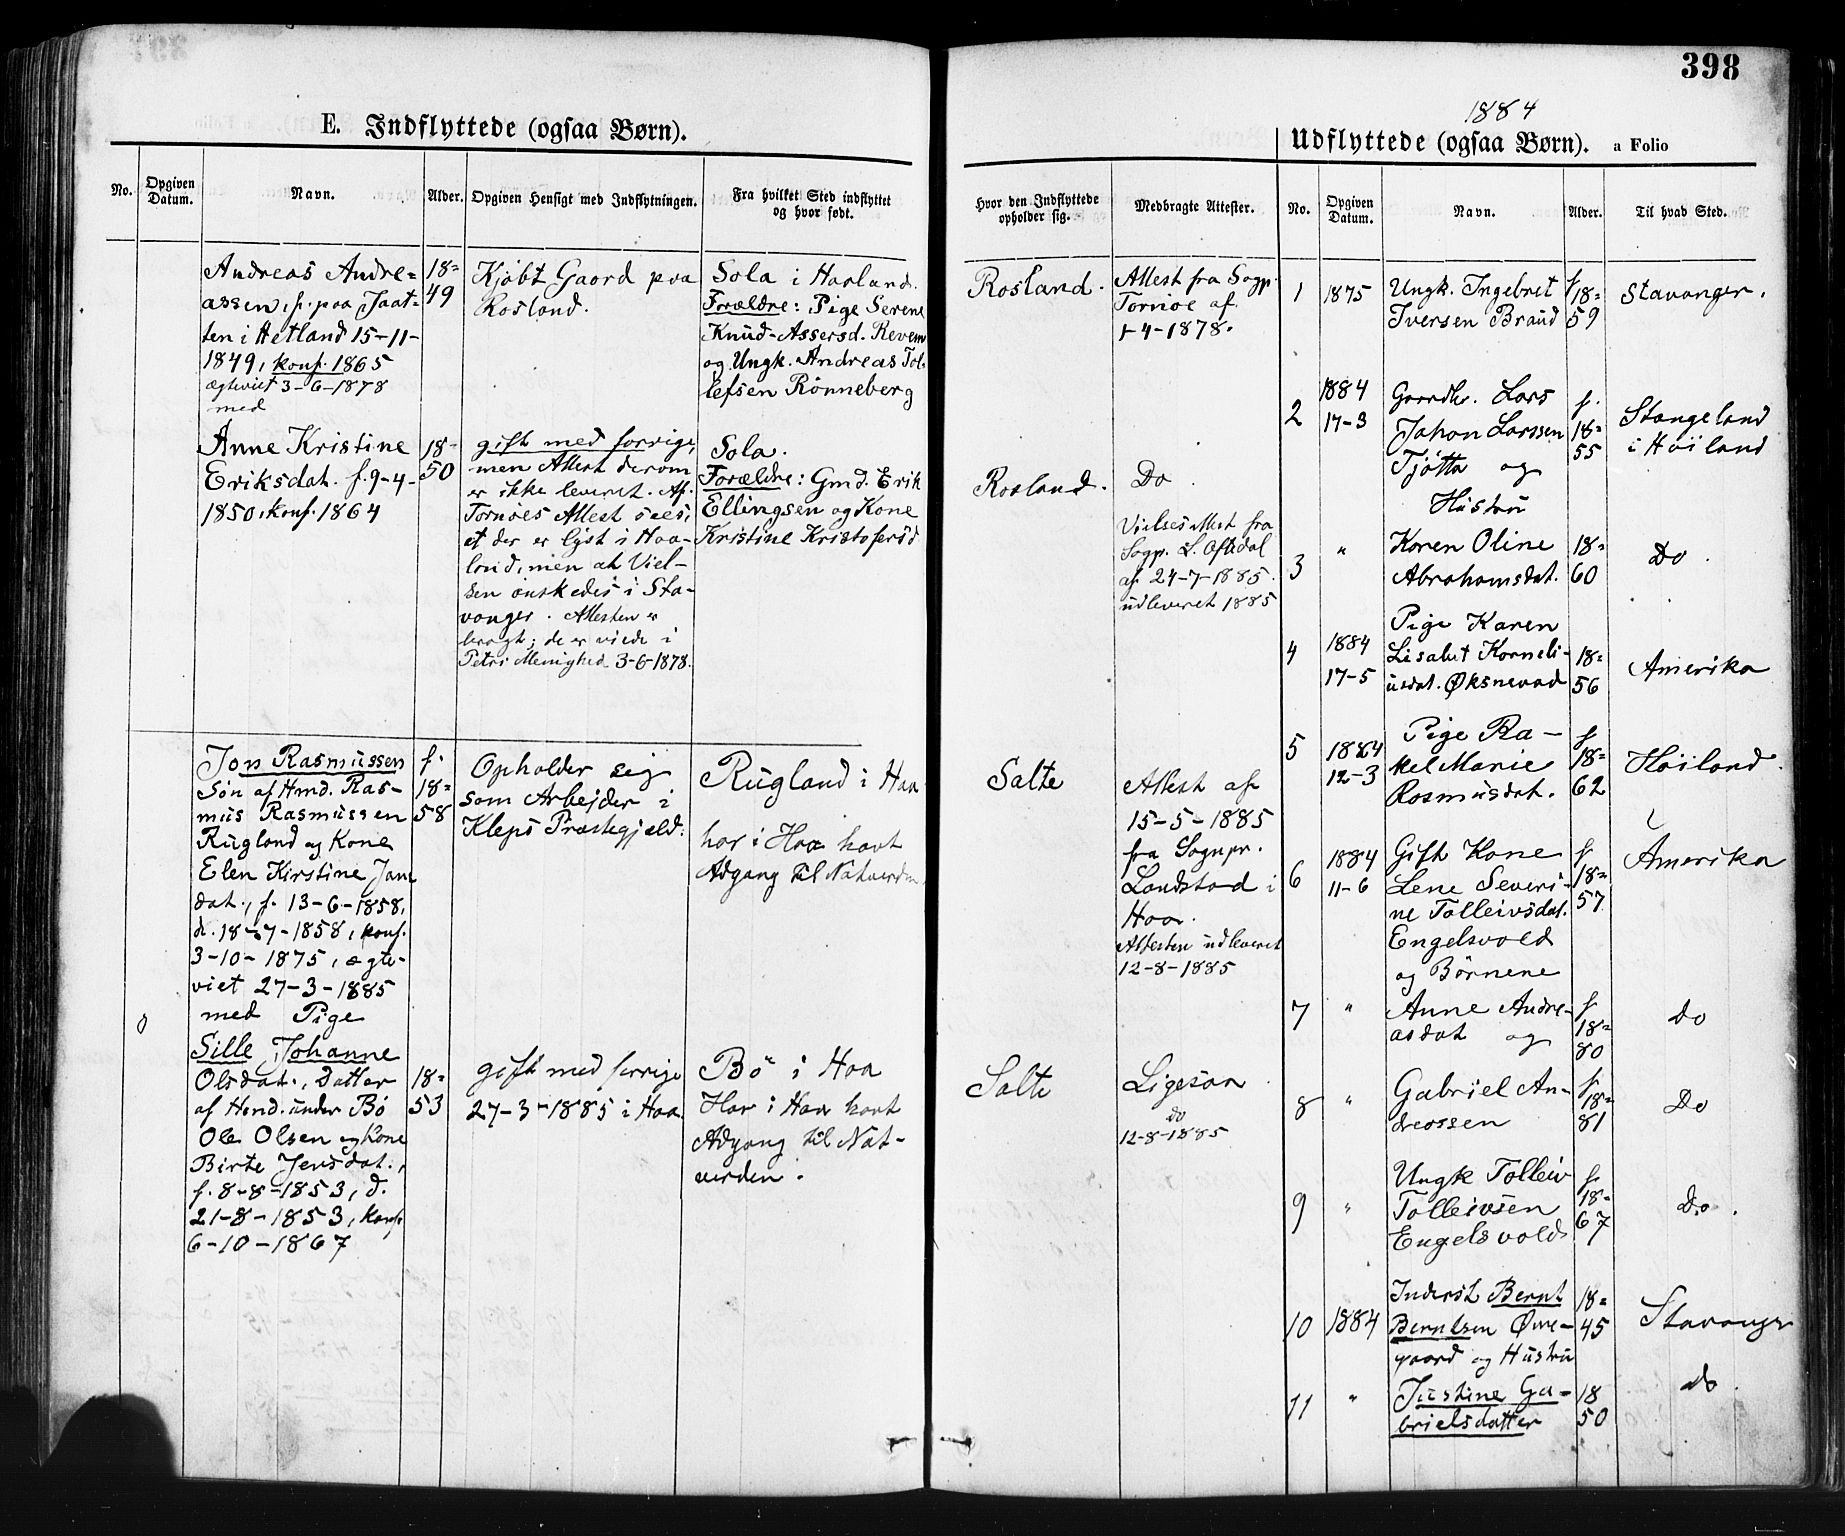 398
1884
E. Indflyttede (ogsaa Børn).
Udflyttede (ogsaa Børn). a Folio
No.
Opgiven Datum.
Navn.
Alder.
Opgiven Hensigt med Indflytningen.
Fra hvilket Sted indflyttet og hvor født.
Hvor den Indflyttede opholder sig.
Medbragte Attester.
No.
Opgiven Datum.
Navn.
Alder.
Til hvad Sted.
Andreas Andre=
assen, f. paa Jaat-
ten i Hetland 15-11-
1849, konf. 1865
ægteviet 3-6-1878
med
18=
49
Kjøbt Gaard paa
Rosland.
Sola i Haaland.
Forældre: Pige Serene
Knud-Assersd. Revem
og Ungk. Andreas Tol-
lefsen Rönneberg
Rosland.
Attest fra Sogp.
Tornöe af
1-4-1878.
Anne Kristine
Eriksdat. f. 9-4-
1850, konf. 1864
18-
50
gift med forrige,
men Attest derom
er ikke leveret. Af
Tornöes Attest sees,
at der er lyst i Haa-
land, men at Viel-
sen önskedes i Sta-
vanger. Attesten er
bragt; de er viede i
Petri Menighed 3-6-1878.
Sola.
Forældre: Gmd. Erik
Ellingsen og Kone
Kristine Kristofersd
Rosland.
Do.
Vielsesattest fra
Sogp. L. Oftedal
af 24-7-1885.
udleveret 1885
Jon Rasmussen
Sön af Hmd. Ras-
mus Rasmussen
Rugland og Kone
Elen Kirstine Jans
dat., f. 13-6-1858,
d. 18-7-1858, konf.
3-10-1875, ægte-
viet 27-3-1885
med Pige
f.
18=
58
Opholder sig
som Arbejder i
Kleps Præstegjæld.
Rugland i Haa
har i Haa havt
Adgang til Natverden.
Salte
Attest af
15-5-1885
fra Sognpr.
Landstad i
Haa.
Attesten udleveret
12-8-1885
Sille Johanne
Olsdat., Datter
af Hmd. under Bö
Ole Olsen og Kone
Birte Jensdat.,
f. 8-8-1853, d.
21-8-1853, konf.
6-10-1867
18=
53
gift med forrige
27-3-1885 i Haa
Bö i Haa
Har i Haa havt
Adgang til Nat-
verden.
Salte
Ligesaa
do
12-8-1885
1
1875
Ungk. Ingebret
Iversen Braud
f
18=
59
Stavanger.
2
1884
17-3
Gaardbr. Lars
Johan Larssen
Tjötta og
Hustru
f.
18=
55
Stangeland
i Höiland
3
"
Karen Oline
Abrahamsdat.
18=
60
Do.
4
1884
17-5
Pige Karen
Lisabet Korneli-
usdat. Øksnevad
18=
56
Amerika
5
1884
12-3
Pige Ra-
kel Marie
Rasmusdat.
f
18=
62
Höiland.
6
1884
11-6
Gift Kone
Lene Severi-
ne Tolleivsdat.
Engelsvold
og Börnene
f
18=
57
Amerika
7
"
Anne Andre-
asdat og
f
18=
80
Do
8
"
Gabriel An-
dreassen
f
18=
81
Do
9
"
Ungk Tolleiv
Tolleivsen
Engelsvold
f
18=
67
Do.
10
1884
Inderst Bernt
Berntsen Övre-
gaard og Hustru
18=
45
Stavanger
11
"
Justine Ga-
brielsdatter
18
50
do.